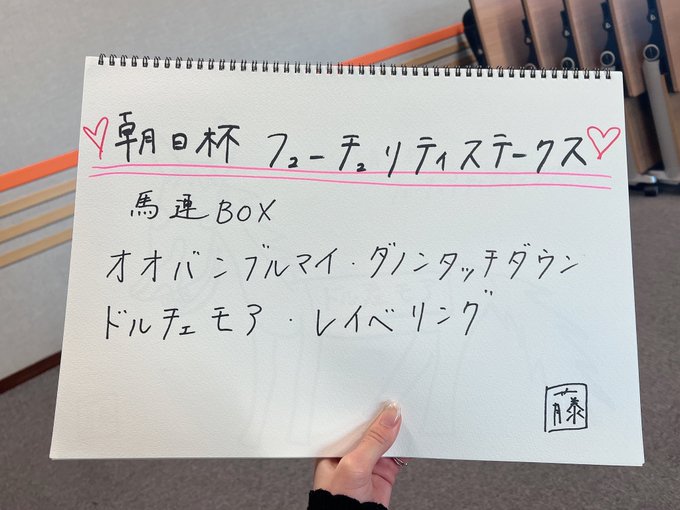 朝日杯 フューチュリティステークス
馬連BOX
オオバンブルマイ・ダノンタッチダウン
ドルチェモア・レイベリング
藤